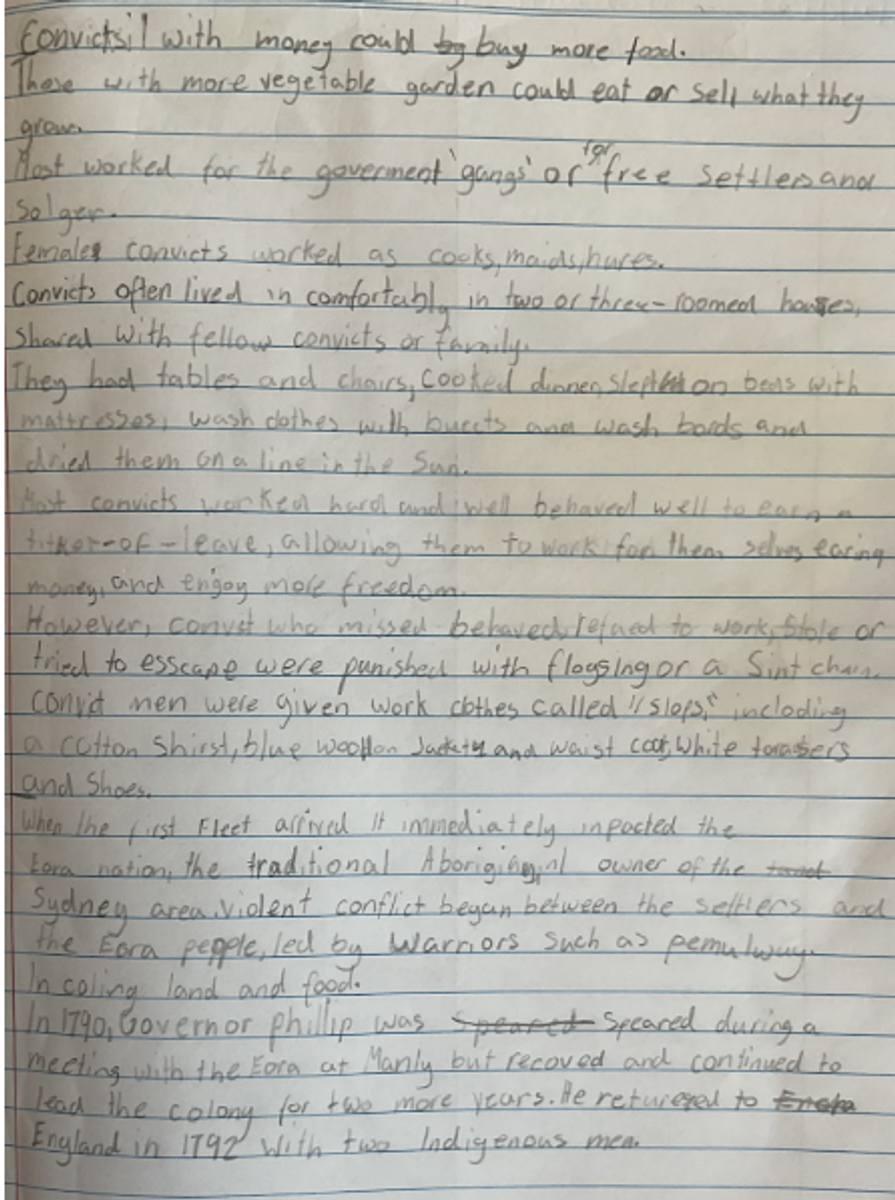 Convicts! with money could by buy more food.
Those with more vegetable garden could eat or sell what they
grow.
Most worked for the goverment 'gangs' or for free settlers and
solger.
Females convicts worked as cooks, maids, nures.
Convicts often lived in comfortably in two or three-roomed houses,
shared with fellow convicts or family.
They had tables and chairs, cooked dinner, slept on beds with
mattresses, wash clothes with buccts and wash bords and
dried them on a line in the sun.
Most convicts worked hard and well behaved well to earn a
ticker-of-leave, allowing them to work for them selves earing
money, and engoy more freedom.
However, convist who missed behaved, refaed to work, stole or
tried to esscape were punished with flogsing or a Sint chain.
Convict men were given work clothes called "slops," including
a cotton shirst, blue woollon Jackets and waist coat, white
and shoes.
When the first Fleet arrived it immediately inpacted the
Eora nation, the traditional owner of the
Sydney area, violent conflict began between the settlers and
the Eora people, led by Warriors such as pemulwuy.
In coling land and food.
In 1790, Governor phillip was speared Speared during a
meeting with the Eora at Manly but recoved and continued to
lead the colony for two more years. He returered to
England in 1792 with two Indigenous men.